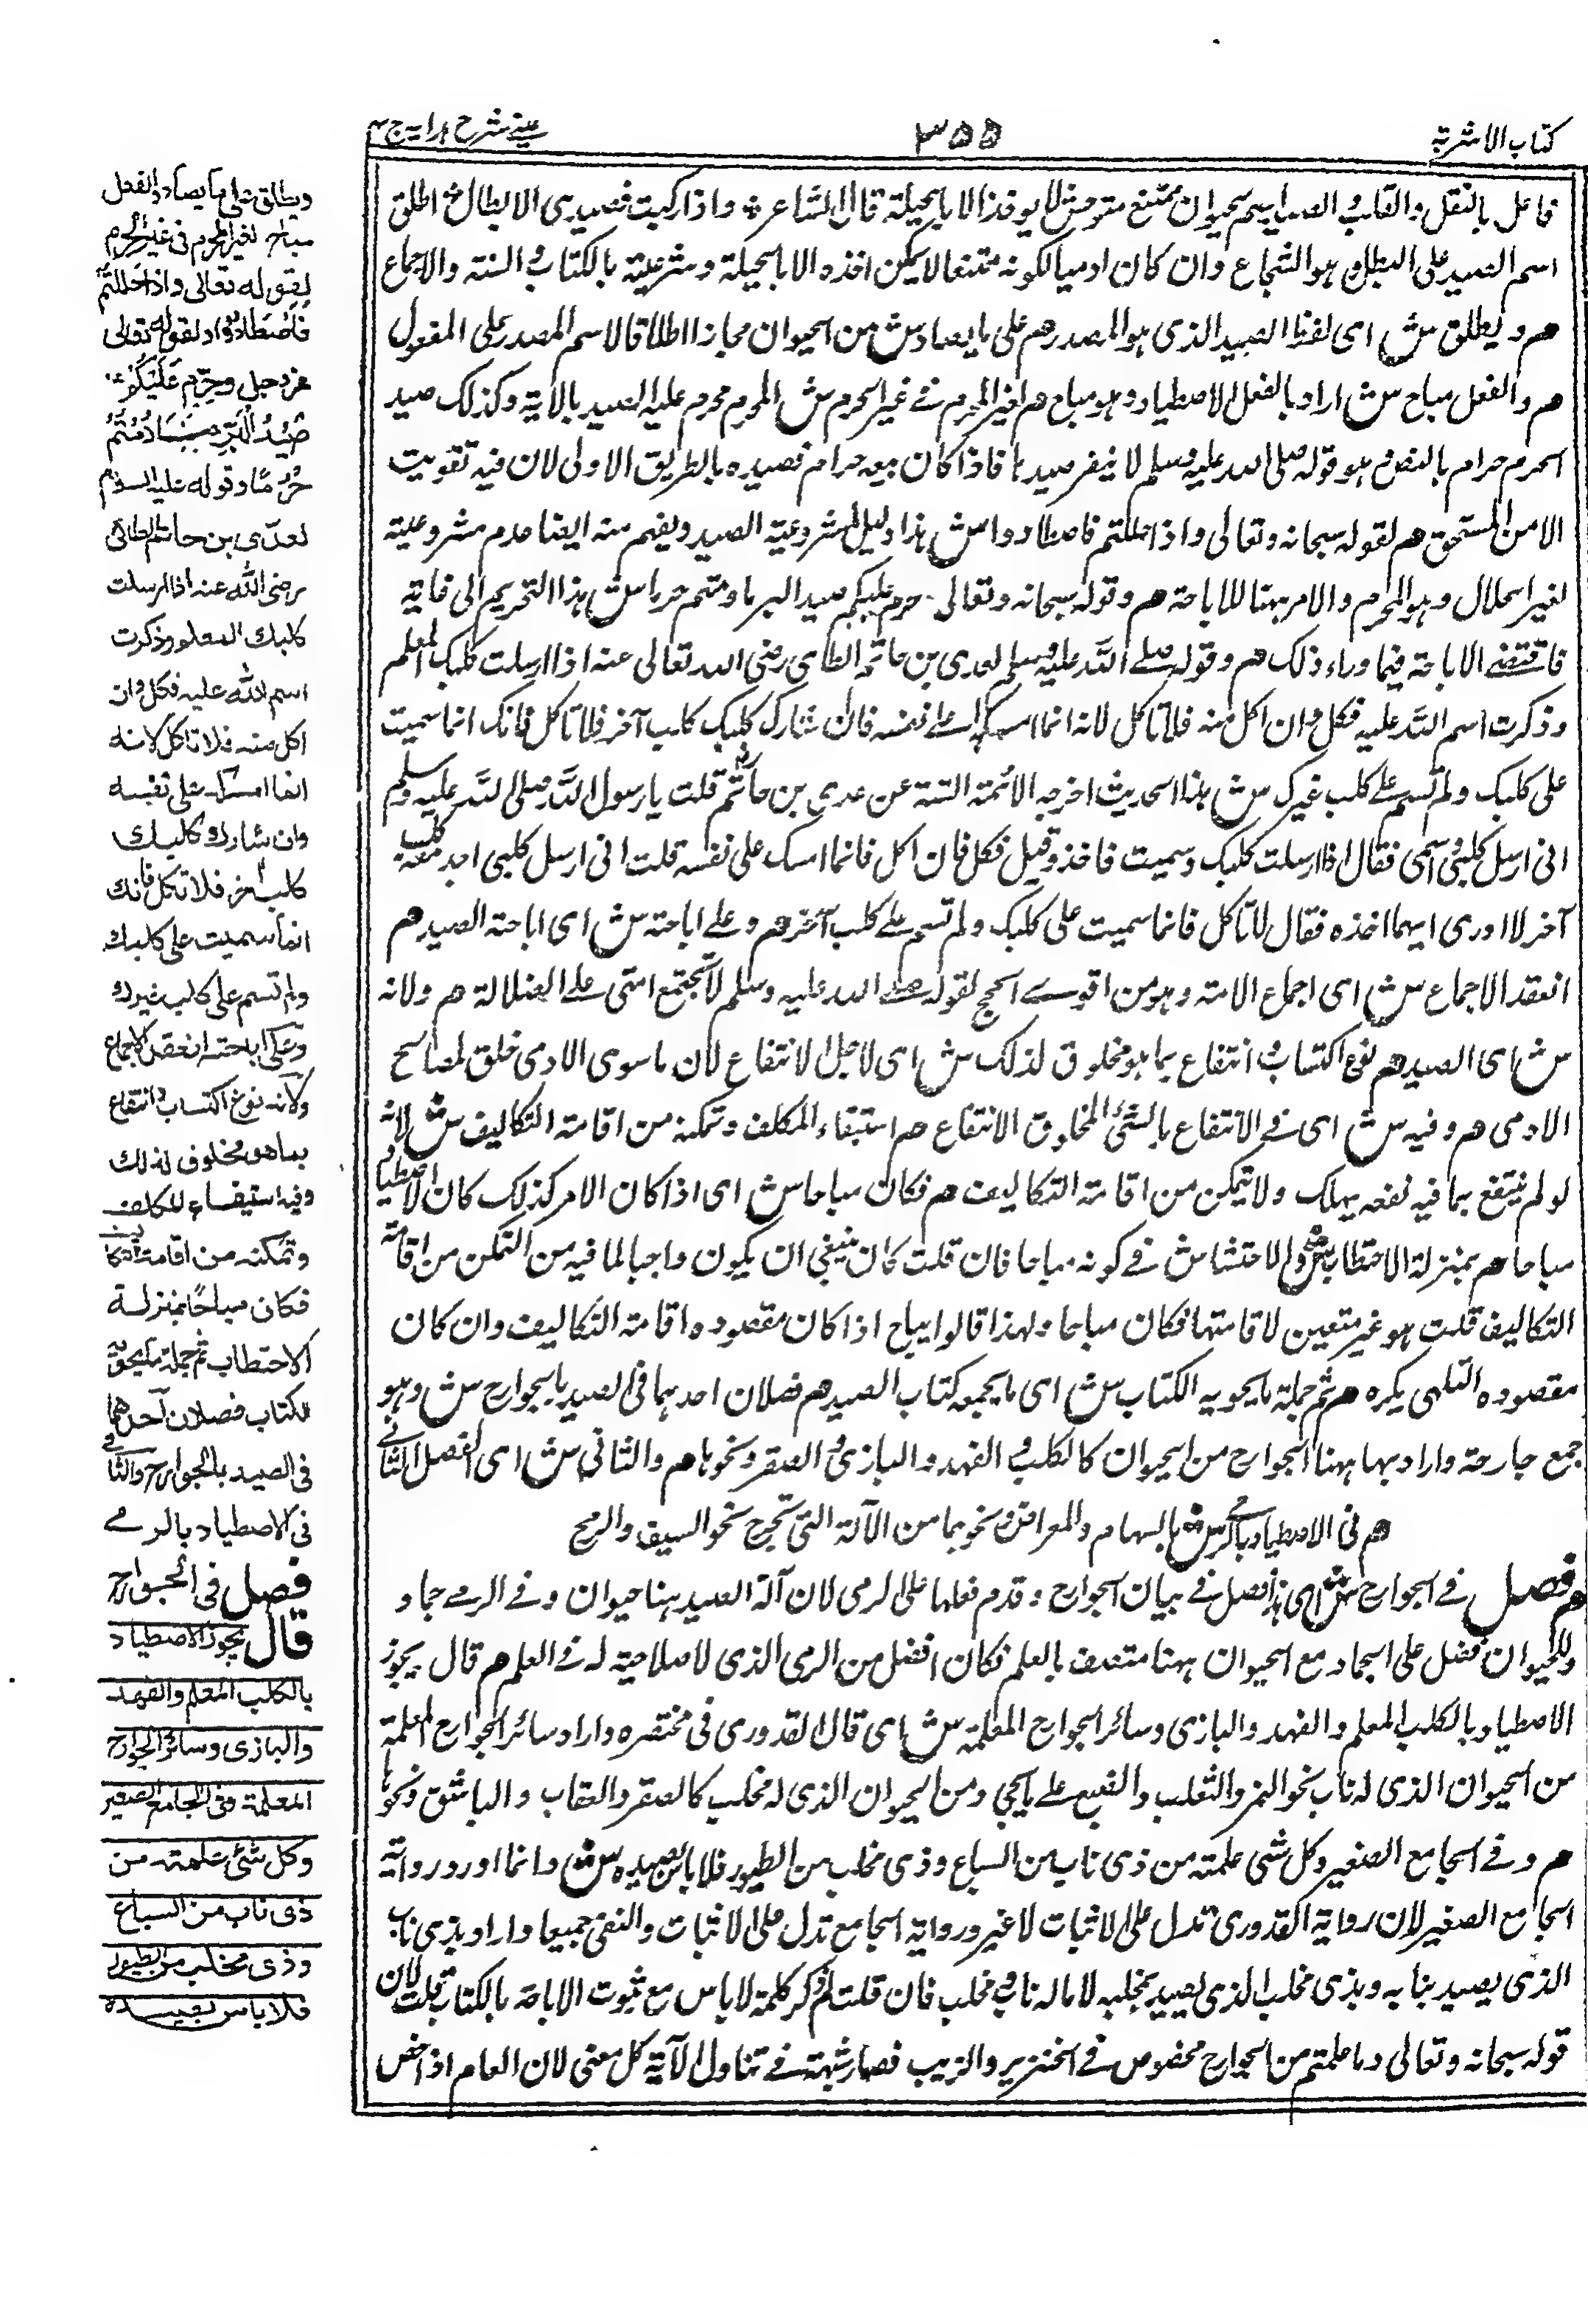 كتاب الاشربة
٣٥٥
عيني شرح هداية ج ٤
فاعل بالنقل والقلب والصيد اسم لحيوان ممتنع متوحش لا يوخذ الا بالحيلة قال الشاعر واذا ركبت فصيدي الابطال اطلق
اسم الصيد على البطل وهو الشجاع وان كان ادميا لكونه ممتنعا لا يمكن اخذه الا بالحيلة وشرعيته بالكتاب والسنة والاجماع
هم ويطلق ش اى لفظ الصيد الذى هو المصدر هم على ما يصاد ش من الحيوان مجازا اطلاقا لاسم المصدر على المفعول
هم والفعل مباح ش اراد بالفعل الاصطياد وهو مباح هم لغير المحرم فى غير الحرم ش المحرم محرم عليه الصيد بالاية وكذلك صيد
الحرم حرام بالنص وهو قوله صلى الله عليه وسلم لا ينفر صيدها فاذا كان حرام فصيده بالطريق الاولى لان فيه تفويت
الامن المستحق هم لقوله سبحانه وتعالى واذا حللتم فاصطادوا ش هذا دليل المشروعية الصيد ويفهم منه ايضا عدم مشروعيته
لغير الحلال وهو المحرم والامر ههنا للاباحة هم وقوله سبحانه وتعالى حرم عليكم صيد البر ما دمتم حرما ش هذا التحريم الى غاية
فاقتضى الاباحة فيما وراء ذلك هم وقوله صلى الله عليه وسلم لعدي بن حاتم الطائى رضى الله تعالى عنه اذا ارسلت كلبك المعلم
وذكرت اسم الله عليه فكل وان اكل منه فلا تاكل لانه انما امسكه على نفسه فان شارك كلبك كلب آخر فلا تاكل فانك انما سميت
على كلبك ولم تسم على كلب غيرك ش هذا الحديث اخرجه الائمة الستة عن عدي بن حاتم قلت يا رسول الله صلى الله عليه وسلم
انى ارسل كلبى واسمى فقال اذا ارسلت كلبك وسميت فاخذ وقتل فكل فان اكل فانما امسك على نفسه قلت انى ارسل كلبى اجد معه كلب
آخر لا ادرى ايهما اخذه فقال لا تاكل فانما سميت على كلبك ولم تسم على كلب آخر هم وعلى اباحته ش اى اباحة الصيد هم
انعقد الاجماع ش اى اجماع الامة وهو من اقوى الحجج لقوله صلى الله عليه وسلم لا تجتمع امتى على الضلالة هم ولانه
ش اى الصيد هم نوع اكتساب وانتفاع بما هو مخلوق لذلك ش اى لاجل الانتفاع لان ما سوى الادمى خلق لمصالح
الادمى هم وفيه ش اى فى الانتفاع بالشئ المخلوق الانتفاع هم استبقاء المكلف وتمكنه من اقامة التكاليف ش لانه
لو لم ينتفع بما فيه نفعه يهلك ولا يتمكن من اقامة التكاليف هم فكان مباحا ش اى اذا كان الامر كذلك كان الاصطياد
مباحا هم بمنزلة الاحتطاب ش والاحتشاش فى كونه مباحا فان قلت كان ينبغى ان يكون واجبا لما فيه من التمكن من اقامة
التكاليف قلت هو غير متعين لاقامتها فكان مباحا ولهذا قالوا يباح اذا كان مقصوده اقامة التكاليف وان كان
مقصوده التلهى يكره هم ثم جملة ما يحويه الكتاب ش اى ما يجمعه كتاب الصيد هم فصلان احدهما فى الصيد بالجوارح ش وهو
جمع جارحة واراد بها ههنا الجوارح من الحيوان كالكلب والفهد والبازى والصقر ونحوها هم والثانى ش اى الفصل الثانى
هم فى الاصطياد بالرمى ش بالسهام والمعراض ونحوهما من الآلة التى تجرح نحو السيف والرمح
هم فصل فى الجوارح ش اى هذا فصل فى بيان الجوارح وقدم فعلها على الرمى لان آلة الصيد ههنا حيوان وفى الرمى جماد
وللحيوان فضل على الجماد مع الحيوان ههنا متصف بالعلم فكان افضل من الرمى الذى لا صلاحية له فى العلم هم قال يجوز
الاصطياد بالكلب المعلم والفهد والبازى وسائر الجوارح المعلمة ش اى قال القدورى فى مختصره واراد سائر الجوارح المعلمة
من الحيوان الذى له ناب نحو النمر والثعلب والضبع على ما يجى ومن الحيوان الذى له مخلب كالصقر والعقاب والباشق ونحوها
هم وفى الجامع الصغير وكل شى علمته من ذى ناب من السباع وذى مخلب من الطيور فلا باس بصيده ش وانما اورد رواية
الجامع الصغير لان رواية القدورى تدل على الاثبات لا غير ورواية الجامع تدل على الاثبات والنفى جميعا واراد بذى ناب
الذى يصيد بنابه وبذى مخلب الذى يصيد بمخلبه لا ما له ناب ومخلب فان قلت لم ذكر كلمة لا باس مع ثبوت الاباحة بالكتاب قلت لان
قوله سبحانه وتعالى وما علمتم من الجوارح مخصوص فى الخنزير والزيب فصار شبهة فى تناول الآية كل معنى لان العام اذا خص
ويطلق على ما يصاد والفعل
مباح لغير المحرم فى غير الحرم
لقوله تعالى واذا حَلَلْتُمْ
فَاصْطَادُوْا ولقوله تعالى
عز وجل وحرّم عَلَيْكُمْ
صَيْدُ الْبَرِّ مَا دُمْتُمْ
حُرُمًا وقوله عليه السلام
لعدّى بن حاتم الطائى
رضى الله عنه اذا ارسلت
كلبك المعلم وذكرت
اسم الله عليه فكل وان
اكل منه فلا تاكل لانه
انما امسك على نفسه
وان شارك كلبك
كلب آخر فلا تاكل فانك
انما سميت على كلبك
ولم تسم على كلب غيرك
وعلى اباحته انعقد الاجماع
ولانه نوع اكتساب وانتفاع
بما هو مخلوق لذلك
وفيه استبقاء للمكلف
وتمكنه من اقامة التكاليف
فكان مباحًا بمنزلة
الاحتطاب ثم جملة ما يحويه
الكتاب فصلان آحدهما
فى الصيد بالجوارح والثانى
فى الاصطياد بالرمى
فصل فى الجوارح
قال يجوز الاصطياد
بالكلب المعلم والفهد
والبازى وسائر الجوارح
المعلمة وفى الجامع الصغير
وكل شئ علمته من
ذى ناب من السباع
وذى مخلب من الطيور
فلا باس بصيده